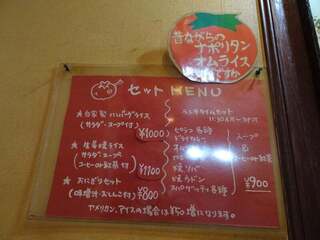 昔ながらの
ナポリタン
オムライス
ですか
セット MENU
★自家製 ハンバーグライス
(サラダ・スープ付)
¥1000
★生姜焼ライス
サラダ・スープ
コーヒーor紅茶付
¥1100
★おにぎりセット
(味噌汁・おしんこ付) ¥800
ピラフ各種
ドライカレー
焼ソバ
焼ウドン
スパゲッティ各種
スープ
&
コーヒーor紅茶
¥900
アメリカン、アイスの場合は¥50増になります。